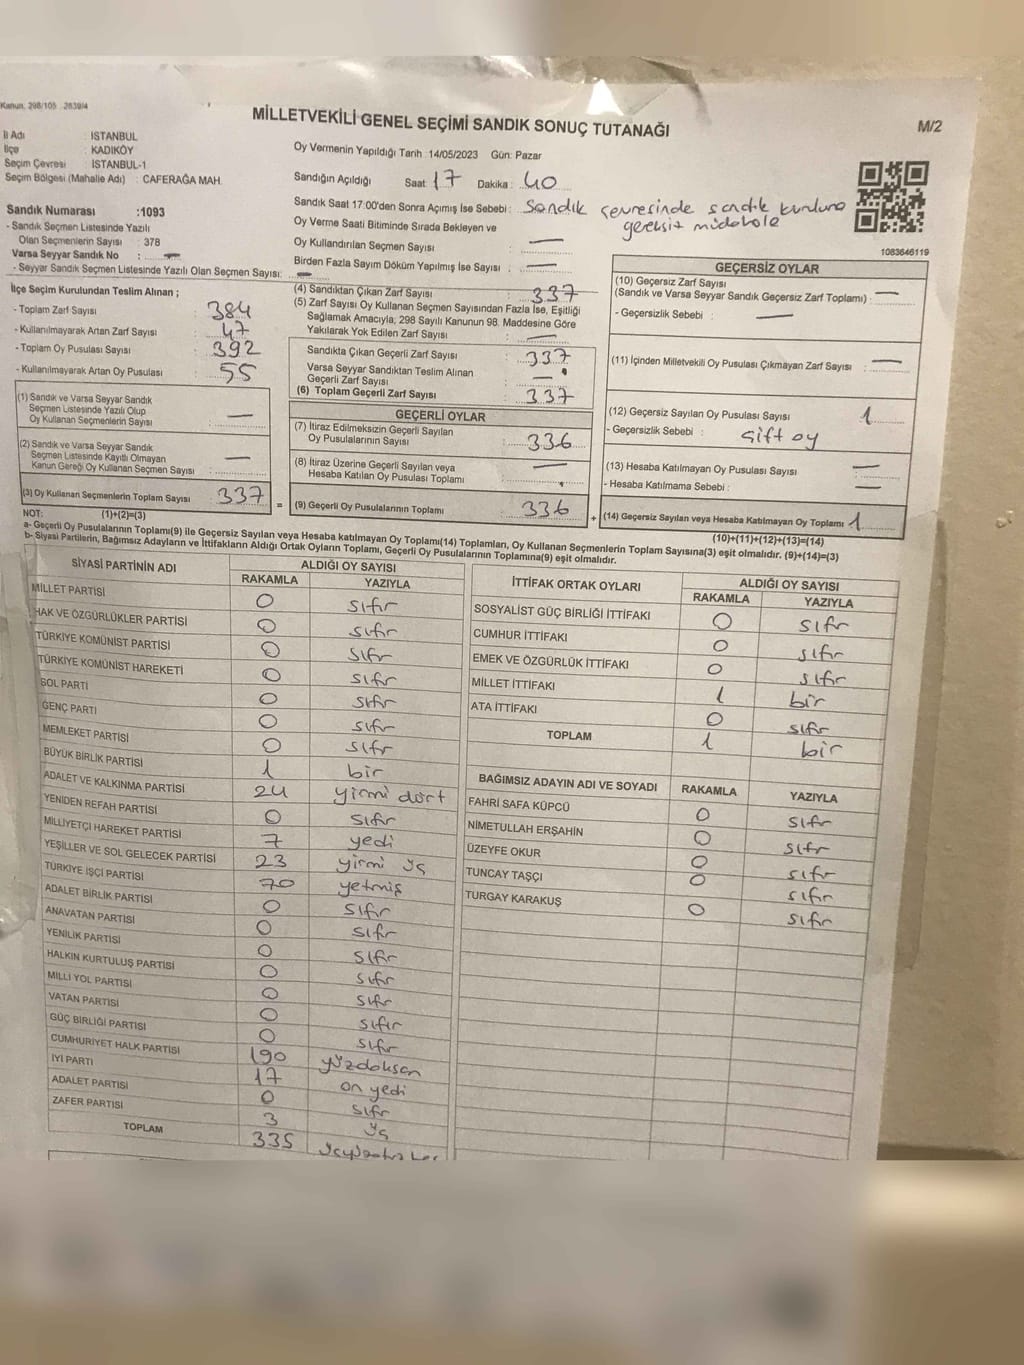 Kanun: 298/105 2839/4
MİLLETVEKİLİ GENEL SEÇİMİ SANDIK SONUÇ TUTANAĞI
M/2
İl Adı : İSTANBUL
İlçe : KADIKÖY
Seçim Çevresi : İSTANBUL-1
Seçim Bölgesi (Mahalle Adı) : CAFERAĞA MAH.
Sandık Numarası :1093
- Sandık Seçmen Listesinde Yazılı
Olan Seçmenlerin Sayısı : 378
Varsa Seyyar Sandık No : —
- Seyyar Sandık Seçmen Listesinde Yazılı Olan Seçmen Sayısı: —
Oy Vermenin Yapıldığı Tarih :14/05/2023 Gün: Pazar
Sandığın Açıldığı Saat: 17 Dakika : 40
Sandık Saat 17:00'den Sonra Açımış İse Sebebi : Sandık çevresinde sandık kuruluna
gereksiz müdahale
Oy Verme Saati Bitiminde Sırada Bekleyen ve
Oy Kullandırılan Seçmen Sayısı : —
Birden Fazla Sayım Döküm Yapılmış İse Sayısı : —
1083646119
İlçe Seçim Kurulundan Teslim Alınan ;
- Toplam Zarf Sayısı : 384
- Kullanılmayarak Artan Zarf Sayısı : 47
- Toplam Oy Pusulası Sayısı : 392
- Kullanılmayarak Artan Oy Pusulası : 55
(1) Sandık ve Varsa Seyyar Sandık
Seçmen Listesinde Yazılı Olup
Oy Kullanan Seçmenlerin Sayısı : —
(2) Sandık ve Varsa Seyyar Sandık
Seçmen Listesinde Kayıtlı Olmayan
Kanun Gereği Oy Kullanan Seçmen Sayısı : —
(3) Oy Kullanan Seçmenlerin Toplam Sayısı : 337 =
(4) Sandıktan Çıkan Zarf Sayısı : 337
(5) Zarf Sayısı Oy Kullanan Seçmen Sayısından Fazla İse, Eşitliği
Sağlamak Amacıyla, 298 Sayılı Kanunun 98. Maddesine Göre
Yakılarak Yok Edilen Zarf Sayısı : —
Sandıkta Çıkan Geçerli Zarf Sayısı : 337
Varsa Seyyar Sandıktan Teslim Alınan
Geçerli Zarf Sayısı : —
(6) Toplam Geçerli Zarf Sayısı : 337
GEÇERLİ OYLAR
(7) İtiraz Edilmeksizin Geçerli Sayılan
Oy Pusulalarının Sayısı : 336
(8) İtiraz Üzerine Geçerli Sayılan veya
Hesaba Katılan Oy Pusulası Toplamı : —
(9) Geçerli Oy Pusulalarının Toplamı : 336 +
GEÇERSİZ OYLAR
(10) Geçersiz Zarf Sayısı
(Sandık ve Varsa Seyyar Sandık Geçersiz Zarf Toplamı) : —
- Geçersizlik Sebebi : —
(11) İçinden Milletvekili Oy Pusulası Çıkmayan Zarf Sayısı : —
(12) Geçersiz Sayılan Oy Pusulası Sayısı : 1
- Geçersizlik Sebebi : Çift oy
(13) Hesaba Katılmayan Oy Pusulası Sayısı : —
- Hesaba Katılmama Sebebi : —
(14) Geçersiz Sayılan veya Hesaba Katılmayan Oy Toplamı : 1
NOT: (1)+(2)=(3)
(10)+(11)+(12)+(13)=(14)
a- Geçerli Oy Pusulalarının Toplamı(9) ile Geçersiz Sayılan veya Hesaba katılmayan Oy Toplamı(14) Toplamları, Oy Kullanan Seçmenlerin Toplam Sayısına(3) eşit olmalıdır. (9)+(14)=(3)
b- Siyasi Partilerin, Bağımsız Adayların ve İttifakların Aldığı Ortak Oyların Toplamı, Geçerli Oy Pusulalarının Toplamına(9) eşit olmalıdır.
SİYASİ PARTİNİN ADI ALDIĞI OY SAYISI
RAKAMLA YAZIYLA
MİLLET PARTİSİ 0 sıfır
HAK VE ÖZGÜRLÜKLER PARTİSİ 0 sıfır
TÜRKİYE KOMÜNİST PARTİSİ 0 sıfır
TÜRKİYE KOMÜNİST HAREKETİ 0 sıfır
SOL PARTİ 0 sıfır
GENÇ PARTİ 0 sıfır
MEMLEKET PARTİSİ 0 sıfır
BÜYÜK BİRLİK PARTİSİ 1 bir
ADALET VE KALKINMA PARTİSİ 24 yirmi dört
YENİDEN REFAH PARTİSİ 0 sıfır
MİLLİYETÇİ HAREKET PARTİSİ 7 yedi
YEŞİLLER VE SOL GELECEK PARTİSİ 23 yirmi üç
TÜRKİYE İŞÇİ PARTİSİ 70 yetmiş
ADALET BİRLİK PARTİSİ 0 sıfır
ANAVATAN PARTİSİ 0 sıfır
YENİLİK PARTİSİ 0 sıfır
HALKIN KURTULUŞ PARTİSİ 0 sıfır
MİLLİ YOL PARTİSİ 0 sıfır
VATAN PARTİSİ 0 sıfır
GÜÇ BİRLİĞİ PARTİSİ 0 sıfır
CUMHURİYET HALK PARTİSİ 190 yüzdoksan
İYİ PARTİ 17 on yedi
ADALET PARTİSİ 0 sıfır
ZAFER PARTİSİ 3 üç
TOPLAM 335
İTTİFAK ORTAK OYLARI ALDIĞI OY SAYISI
RAKAMLA YAZIYLA
SOSYALİST GÜÇ BİRLİĞİ İTTİFAKI 0 sıfır
CUMHUR İTTİFAKI 0 sıfır
EMEK VE ÖZGÜRLÜK İTTİFAKI 0 sıfır
MİLLET İTTİFAKI 1 bir
ATA İTTİFAKI 0 sıfır
TOPLAM 1 bir
BAĞIMSIZ ADAYIN ADI VE SOYADI RAKAMLA YAZIYLA
FAHRİ SAFA KÜPCÜ 0 sıfır
NİMETULLAH ERŞAHİN 0 sıfır
ÜZEYFE OKUR 0 sıfır
TUNCAY TAŞÇI 0 sıfır
TURGAY KARAKUŞ 0 sıfır